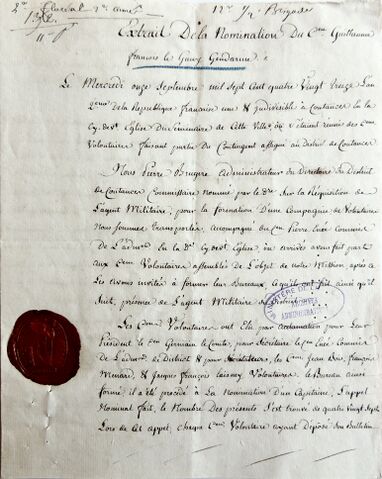 12e 1/2 Brigade
Extrait De la Nomination Du Cen Guillaume
françois le Gendarme
Le Mercredi onze Septembre mil Sept Cent quatre Vingt treize L'an
de la Republique francaise une & indivisible a Coutances en la
Eglise du Séminaire de Cette Ville, où s'étaient réunis des Cens
Volontaires faisant partie Du Contingent assigné au District de Coutances
Nous Pierre Bruyere Administrateur du Directoire du District
de Coutances Commissaire nommé par le Sur la Réquisition de
L'agent Militaire, pour la formation D'une Compagnie de Volontaires
Nous Sommes Transportés, accompagné du Cen Pierre Commis
De L'adm en la De Eglise ou arrivés avons fait part
aux Cens Volontaires assemblés de L'objet de notre Mission, après quoi
Les avons invités à former leur Bureau, ce qu'ils ont fait ainsi qu'il
Suit, présence de L'agent Militaire du District
MINISTÈRE DE LA
ARCHIVES
ADMINISTRATIVES
Les Cens Volontaires ont Elu par acclamation pour Leur
Président le Cen Germain le Comte, pour Secrétaire le Cen Commis
De L'adm de District & pour Scrutateurs, les Cens Jean françois
Menard, & Jacques François Volontaires. Le Bureau ainsi
formé, il a été procédé à La Nomination d'un Capitaine, L'appel
Nominal fait, le Nombre Des présents S'est trouvé de quatre Vingt Sept,
Lors de cet appel, chaque Cen Volontaire ayant Déposé Son Bulletin